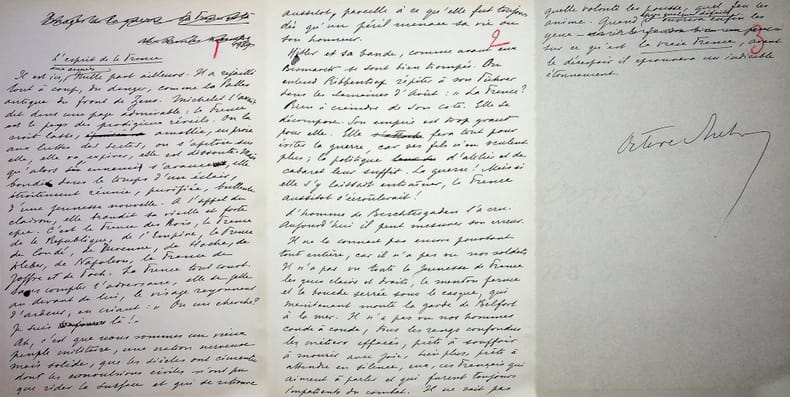 1
L'esprit de la France
Il est ici, nulle part ailleurs. Il a rejailli
tout à coup, du danger, comme la Pallas
antique du front de Zeus. Michelet l'avait
dit dans une page admirable: la France
est le pays des prodigieux réveils. On la
croit lasse, amollie, en proie
aux luttes des sectes, on s'apitoie sur
elle, elle va expirer, elle est dissoute. Mais
qu'alors un ennemi s'avance, elle
bondit sous le temps d'un éclair,
étroitement réunie, purifiée, bullante
d'une jeunesse nouvelle. A l'appel du
clairon, elle brandit sa vieille et forte
épée. C'est la France des Rois, la France
de la République, de l'Empire, la France
de Condé, de Turenne, de Hoche, de
Kléber, de Napoléon, la France de
Joffre et de Foch. La France tout court.
Sans compter l'adversaire, elle se jette
au devant de lui, le visage rayonnant
d'ardeur, en criant: « On me cherche?
Je suis là! »
Ah, c'est que nous sommes un vieux
peuple militaire, une nation nerveuse
mais solide, que les siècles ont cimentée
dont les convulsions civiles n'ont pu
que rider la surface et qui se retrouve
2
aussitôt, pareille à ce qu'elle fut toujours
dès qu'un péril menace sa vie ou
son honneur.
Hitler et sa bande, comme avant eux
Bismarck se sont bien trompés. On
entend Ribbentrop répéter à son Führer
dans les semaines d'Août: « La France?
Rien à craindre de son coté. Elle se
décompose. Son empire est trop grand
pour elle. Elle fera tout pour
éviter la guerre, car ses fils n'en veulent
plus; la politique d'atelier et de
cabaret leur suffit. La guerre! Mais si
elle s'y laissait entraîner, la France
aussitôt s'écroulerait!
L'homme de Berchtesgaden l'a cru.
Aujourd'hui il peut mesurer son erreur.
Il ne la connaît pas encore pourtant
tout entière, car il n'a pas vu nos soldats
Il n'a pas vu toute la jeunesse de France
les yeux clairs et droits, le menton ferme
et la bouche serrée sous le casque, qui
monte la garde de Belfort
à la mer. Il n'a pas vu nos hommes
coude à coude, tous les rangs confondus
les métiers effacés, prêts à souffrir
à mourir avec joie, bien plus, prêts à
attendre en silence, eux, ces français qui
aiment à parler et qui furent toujours
impatients du combat. Il ne sait pas
3
quelle volonté les pousse, quel feu les
anime. Quand il
yeux
sur ce qu'est la vraie France, avant
le désespoir il éprouvera un indicible
étonnement.